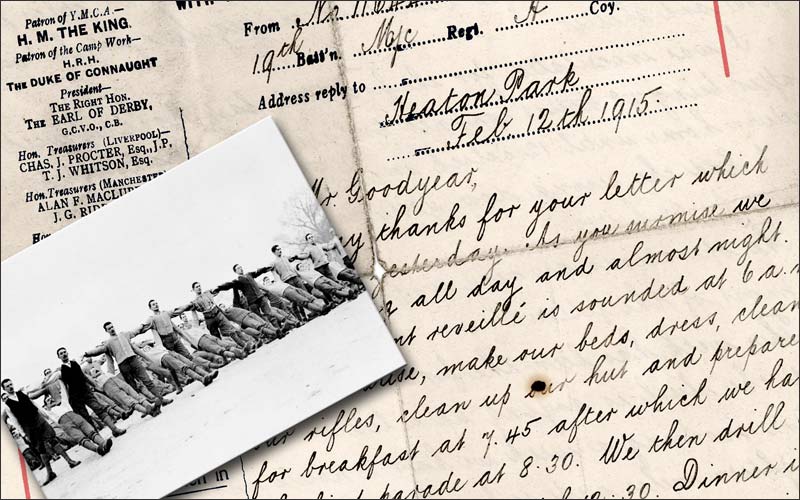 Patron of Y.M.C.A.—
H. M. THE KING.
Patron of the Camp Work—
H.R.H.
THE DUKE OF CONNAUGHT
President—
THE RIGHT HON.
THE EARL OF DERBY,
G.C.V.O., C.B.
Hon. Treasurers (LIVERPOOL)—
CHAS. J. PROCTER, Esq., J.P.
T. J. WHITSON, Esq.
Hon. Treasurers (MANCHESTER
ALAN F.
J. G.
From No A Coy.
19th Batt'n. M/c Regt.
Address reply to Heaton Park
Feb. 12th 1915.
Mr Goodyear,
thanks for your letter which
yesterday. As you surmise we
all day and almost night.
reveillé is sounded at 6 a.m
make our beds, dress, clean
our rifles, clean up our hut and prepare
for breakfast at 7.45 after which we ha
parade at 8.30. We then drill
12.30. Dinner i
in